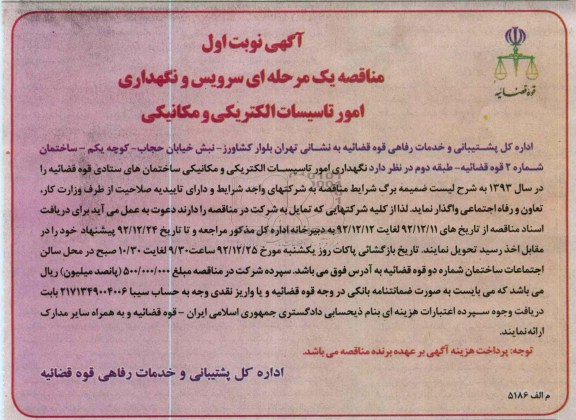 آگهی نوبت اول
مناقصه یک مرحله ای سرویس و نگهداری
امور تاسیسات الکتریکی و مکانیکی
قوه قضائیه
اداره کل پشتیبانی و خدمات رفاهی قوه قضائیه به نشانی تهران بلوار کشاورز- نبش خیابان حجاب- کوچه یکم - ساختمان
شماره ۲ قوه قضائیه- طبقه دوم در نظر دارد نگهداری امور تاسیسات الکتریکی و مکانیکی ساختمان های ستادی قوه قضائیه را
در سال ۱۳۹۳ به شرح لیست ضمیمه برگ شرایط مناقصه به شرکتهای واجد شرایط و دارای تاییدیه صلاحیت از طرف وزارت کار،
تعاون و رفاه اجتماعی واگذار نماید. لذا از کلیه شرکتهایی که تمایل به شرکت در مناقصه را دارند دعوت به عمل می آید برای دریافت
اسناد مناقصه از تاریخ های ۹۲/۱۲/۱۱ لغایت ۹۲/۱۲/۱۲ به دبیرخانه اداره کل مذکور مراجعه و تا تاریخ ۹۲/۱۲/۲۴ پیشنهاد خود را در
مقابل اخذ رسید تحویل نمایند. تاریخ بازگشائی پاکات روز یکشنبه مورخ ۹۲/۱۲/۲۵ ساعت ۹/۳۰ لغایت ۱۰/۳۰ صبح در محل سالن
اجتماعات ساختمان شماره دو قوه قضائیه به آدرس فوق می باشد. سپرده شرکت در مناقصه مبلغ ۵۰۰/۰۰۰/۰۰۰ (پانصد میلیون) ریال
می باشد که می بایست به صورت ضمانتنامه بانکی در وجه قوه قضائیه و یا واریز نقدی وجه به حساب سیبا ۲۱۷۱۳۴۹۰۰۴۰۰۶ بابت
دریافت وجوه سپرده اعتبارات هزینه ای بنام ذیحسابی دادگستری جمهوری اسلامی ایران - قوه قضائیه و به همراه سایر مدارک
ارائه نمایند.
توجه: پرداخت هزینه آگهی بر عهده برنده مناقصه می باشد.
اداره کل پشتیبانی و خدمات رفاهی قوه قضائیه
م الف ۵۱۸۶